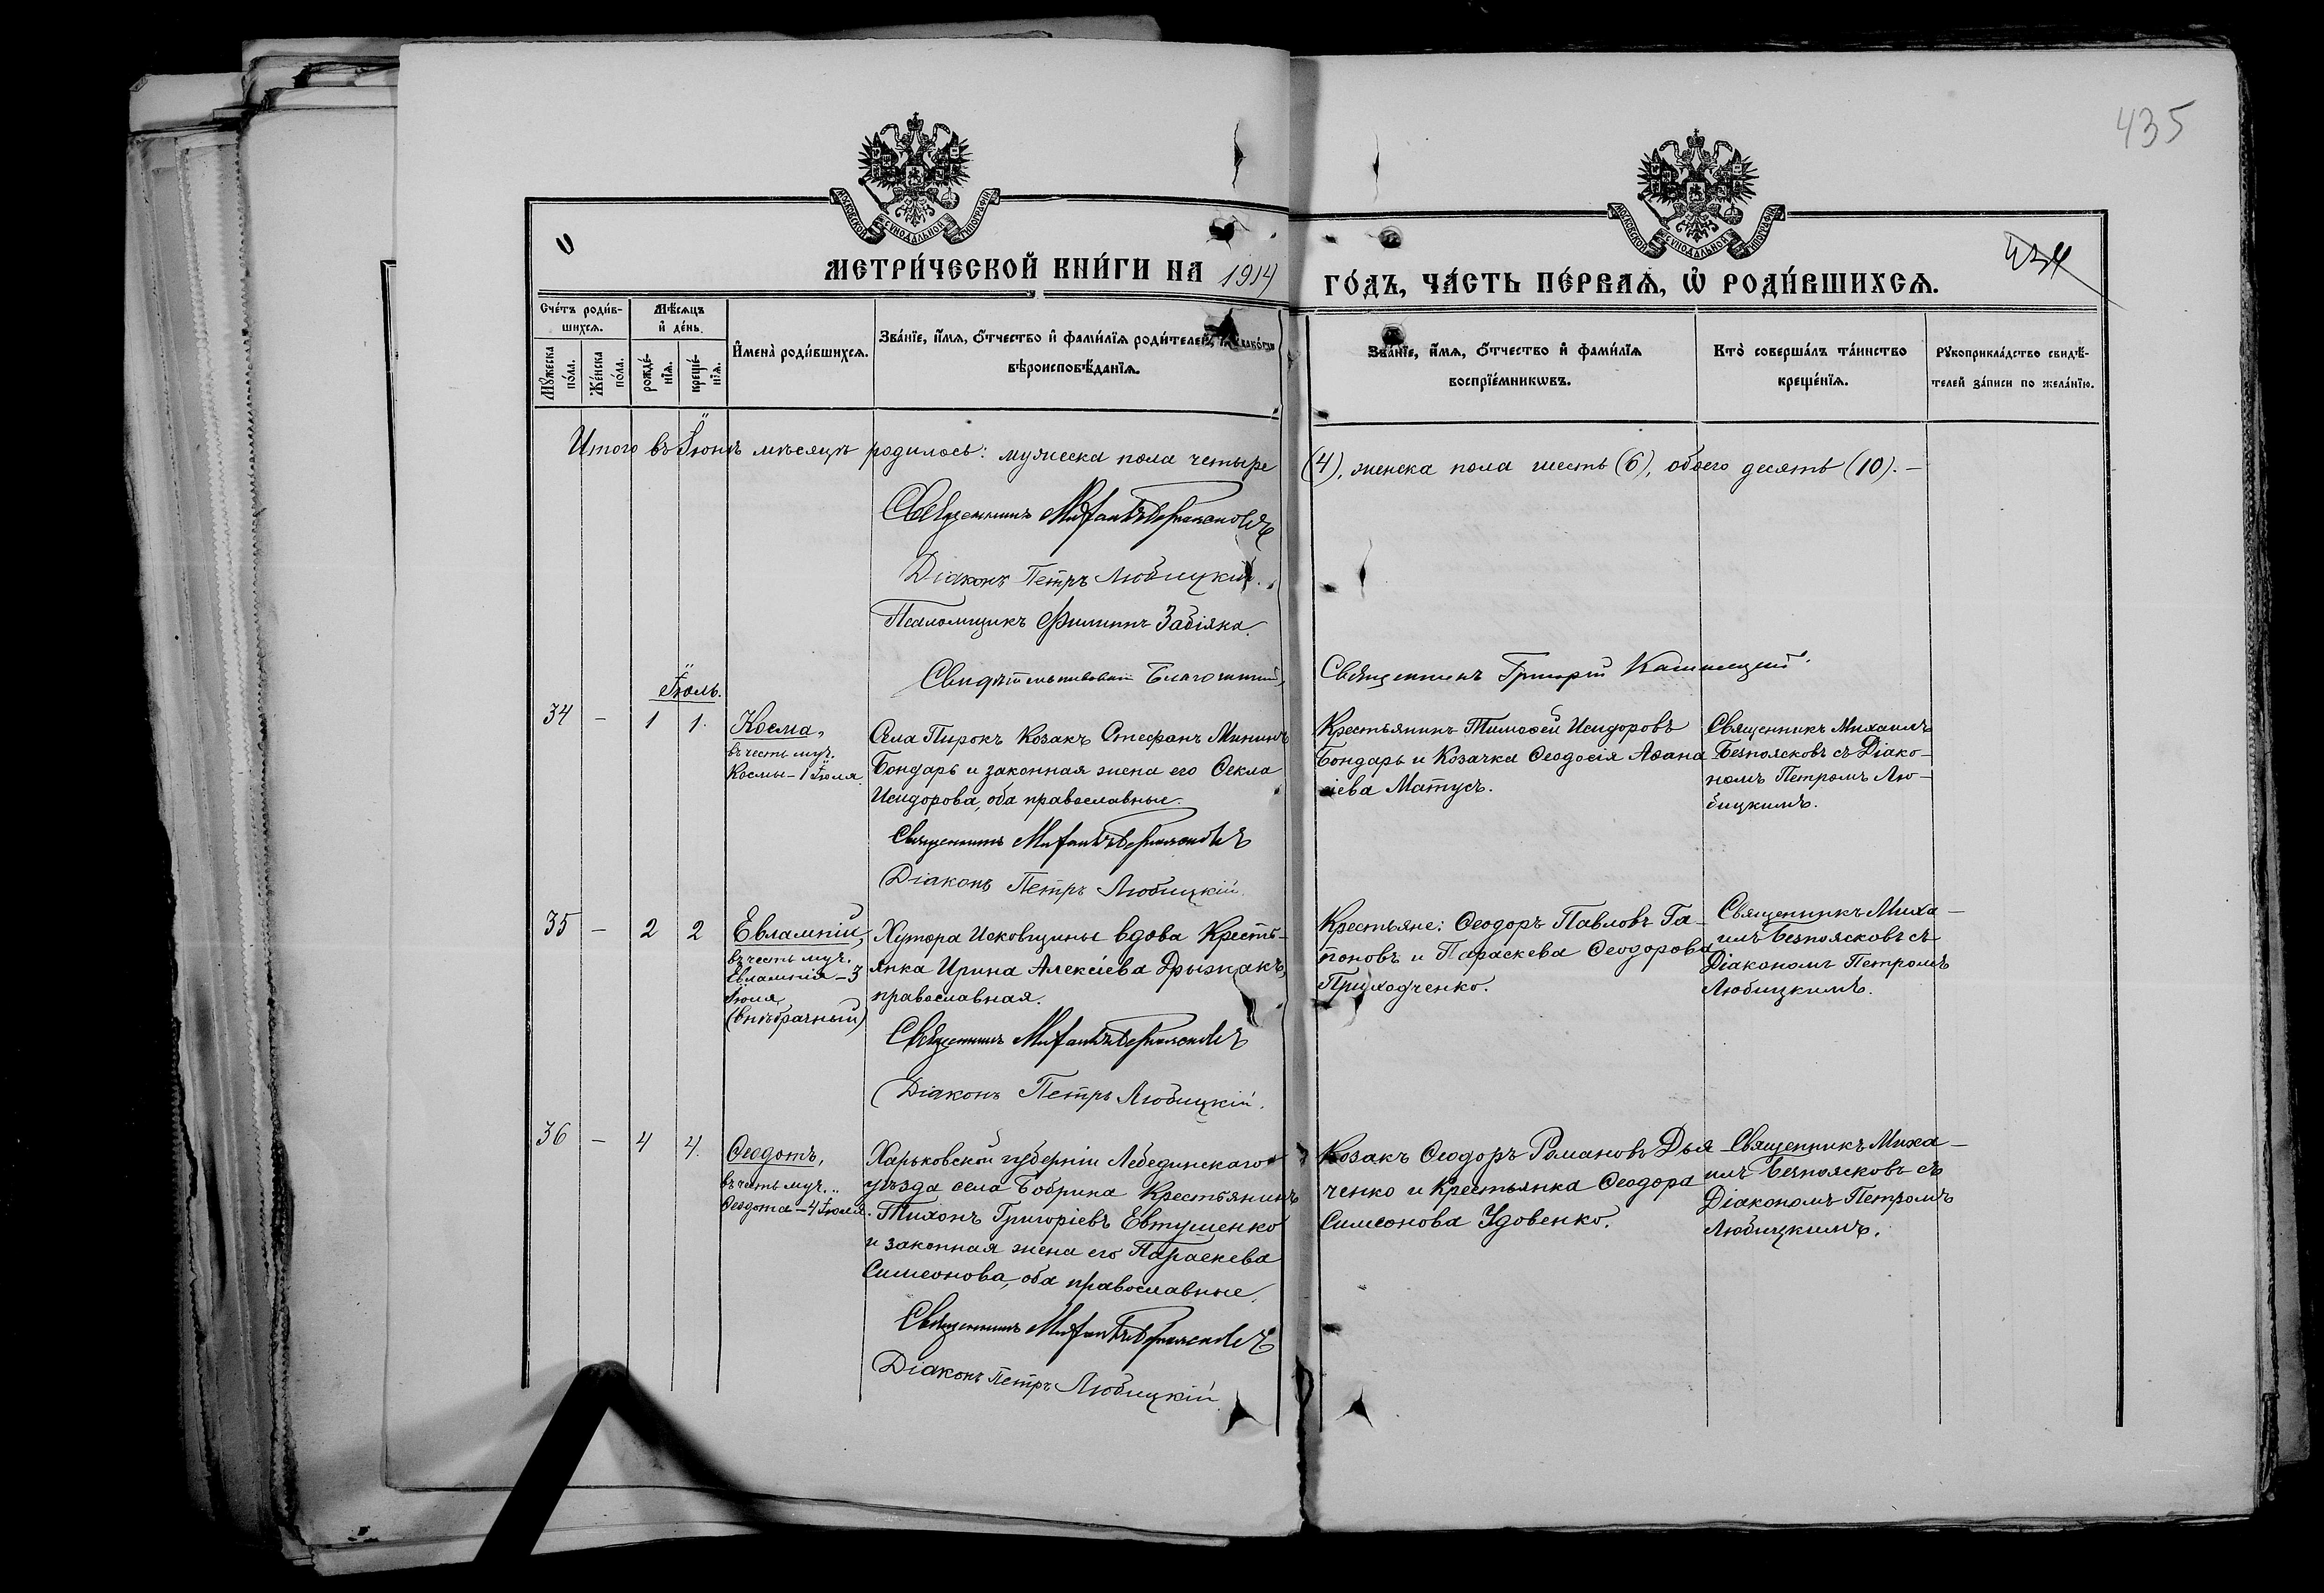 435
434
МОСКОВСКОЙ СѴНОДАЛЬНОЙ ТИПОГРАФІИ
МОСКОВСКОЙ СѴНОДАЛЬНОЙ ТИПОГРАФІИ
МЕТРИ́ЧЕСКОЙ КНИ́ГИ НА 1914 ГО́ДЪ, ЧА́СТЬ ПЕ́РВАѦ, Ѡ҆ РОДИ́ВШИХСѦ.
Сче́тъ роди́в-
шихсѧ.
Мꙋ́жеска по́ла.
Же́нска по́ла.
Мѣ́сѧцъ
и҆ де́нь.
рожде́-
нїѧ.
креще́-
нїѧ.
И҆мена̀ роди́вшихсѧ.
Зва́нїе, и҆́мѧ, ѻ҆́тчество и҆ фами́лїѧ роди́телей, и҆ како́гѡ
вѣроисповѣ́данїѧ.
Зва́нїе, и҆́мѧ, ѻ҆́тчество и҆ фами́лїѧ
воспрїе́мникѡвъ.
Кто̀ соверша́лъ та́инство
креще́нїѧ.
Рꙋкоприкла́дство свидѣ́-
телей за́писи по жела́нїю.
Итого въ Іюнѣ мѣсяцѣ родилось: мужеска пола четыре (4), женска пола шесть (6), обоего десять (10). —
Священникъ Михаилъ Безпоясковъ
Діаконъ Петръ Любицкій.
Псаломщикъ Филиппъ Забіяка.
Свидѣтельствовалъ Благочинный, Священникъ Григорій
Іюль.
34 — 1 1.
Косма,
въ честь муч.
Космы – 1 Іюля.
Села Пирокъ Козакъ Стефанъ Мининъ
Бондарь и законная жена его Ѳекла
Исидорова, оба православные.
Священникъ Михаилъ Безпоясковъ
Діаконъ Петръ Любицкій.
Крестьянинъ Тимоѳей Исидоровъ
Бондарь и Козачка Ѳеодосія Аѳана
сіева Матусъ.
Священникъ Михаилъ
Безпоясковъ съ Діако-
номъ Петромъ Лю-
бицкимъ.
35 — 2 2
Евлампій,
въ честь муч.
Евлампія – 3
Іюля,
(внѣбрачный)
Хутора Исковщины вдова Кресть-
янка Ирина Алексіева Дрыжакъ,
православная.
Священникъ Михаилъ Безпоясковъ
Діаконъ Петръ Любицкій.
Крестьяне: Ѳеодоръ Павловъ Га-
поновъ и Параскева Ѳеодорова
Приходченко.
Священникъ Миха-
илъ Безпоясковъ съ
Діакономъ Петромъ
Любицкимъ.
36 — 4 4.
Ѳеодотъ,
въ честь муч.
Ѳеодота – 4 Іюля.
Харьковской губерніи Лебединскаго
уѣзда села Бобрика Крестьянинъ
Тихонъ Григоріевъ Евтушенко
и законная жена его Параскева
Симеонова, оба православные.
Священникъ Михаилъ Безпоясковъ
Діаконъ Петръ Любицкій.
Козакъ Ѳеодоръ Романовъ Дья-
ченко и Крестьянка Ѳеодора
Симеонова Удовенко.
Священникъ Миха-
илъ Безпоясковъ съ
Діакономъ Петромъ
Любицкимъ.